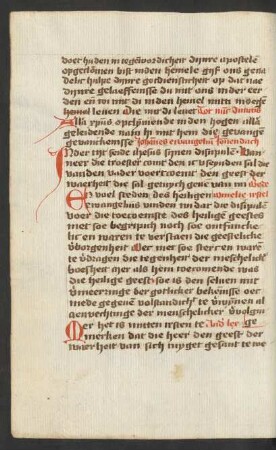 voer huden in tegenwoirdicheit dynre apostelē
opgeclōmen bist inden hemele gyf ons gena
delic hulpe dynre goedertierenheit op dat nae
dynre gelaeffenisse du mit ons in der eer
den eñ wi mit di inden hemel mits moegē
hemel leuen Die mit di leuet
Als xpūs opclymende inden hogen alsā
geleidende nam hi mit hem die gevangē
gevanckenisse Johannes evangelist
In der tijt seide ihesus synen discipulē Wan
neer die troester coemt den ic v seynden sal die
vanden vader voertcoemt den geest der
waerheit die sal getuych geue van mi
Er voel steden des heiligen
ewangelius vinden wi dat die discipulē
voer die toecoemste des heilige geestes
mit soe begripich noch soe ontfancke
lic en waren te verstaen die geestelicke
verborgenheit Oec mit soe sterc en waren
te v̄dragen die tegenheit der menschelich
boesheit mer als hem toecomende was
die heilige geest soe is den seluen mit
v̄meerringe der gotlicker bekenisse oec
mede gegeuē volstandich te v̄wynnen al
aenvechtinge der menschelicker v̄volgin
Mer het is mitten irsten te
mercken dat die heer den geest der
waerheit van sich seyget gesant te we